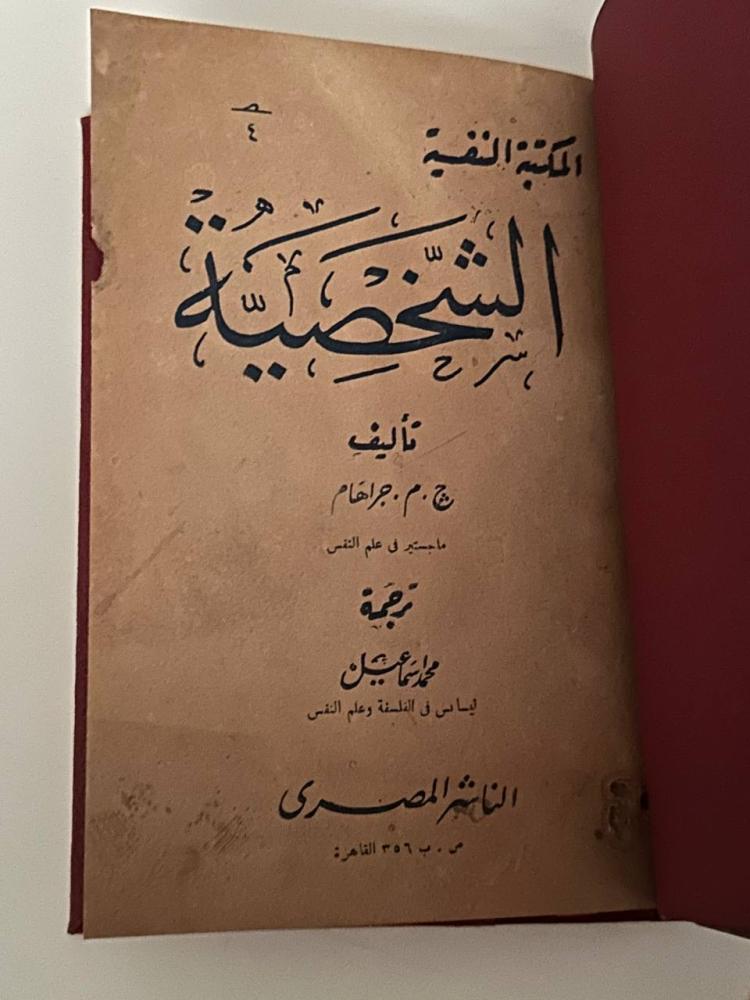 المكتبة النفسية
ص
٤
الشَّخصِيَّةُ
تأليف
ج . م . جراهام
ماجستير فى علم النفس
ترجمة
محمد اسماعيل
ليسانس فى الفلسفة وعلم النفس
الناشر المصرى
ص . ب ٣٥٦ القاهرة